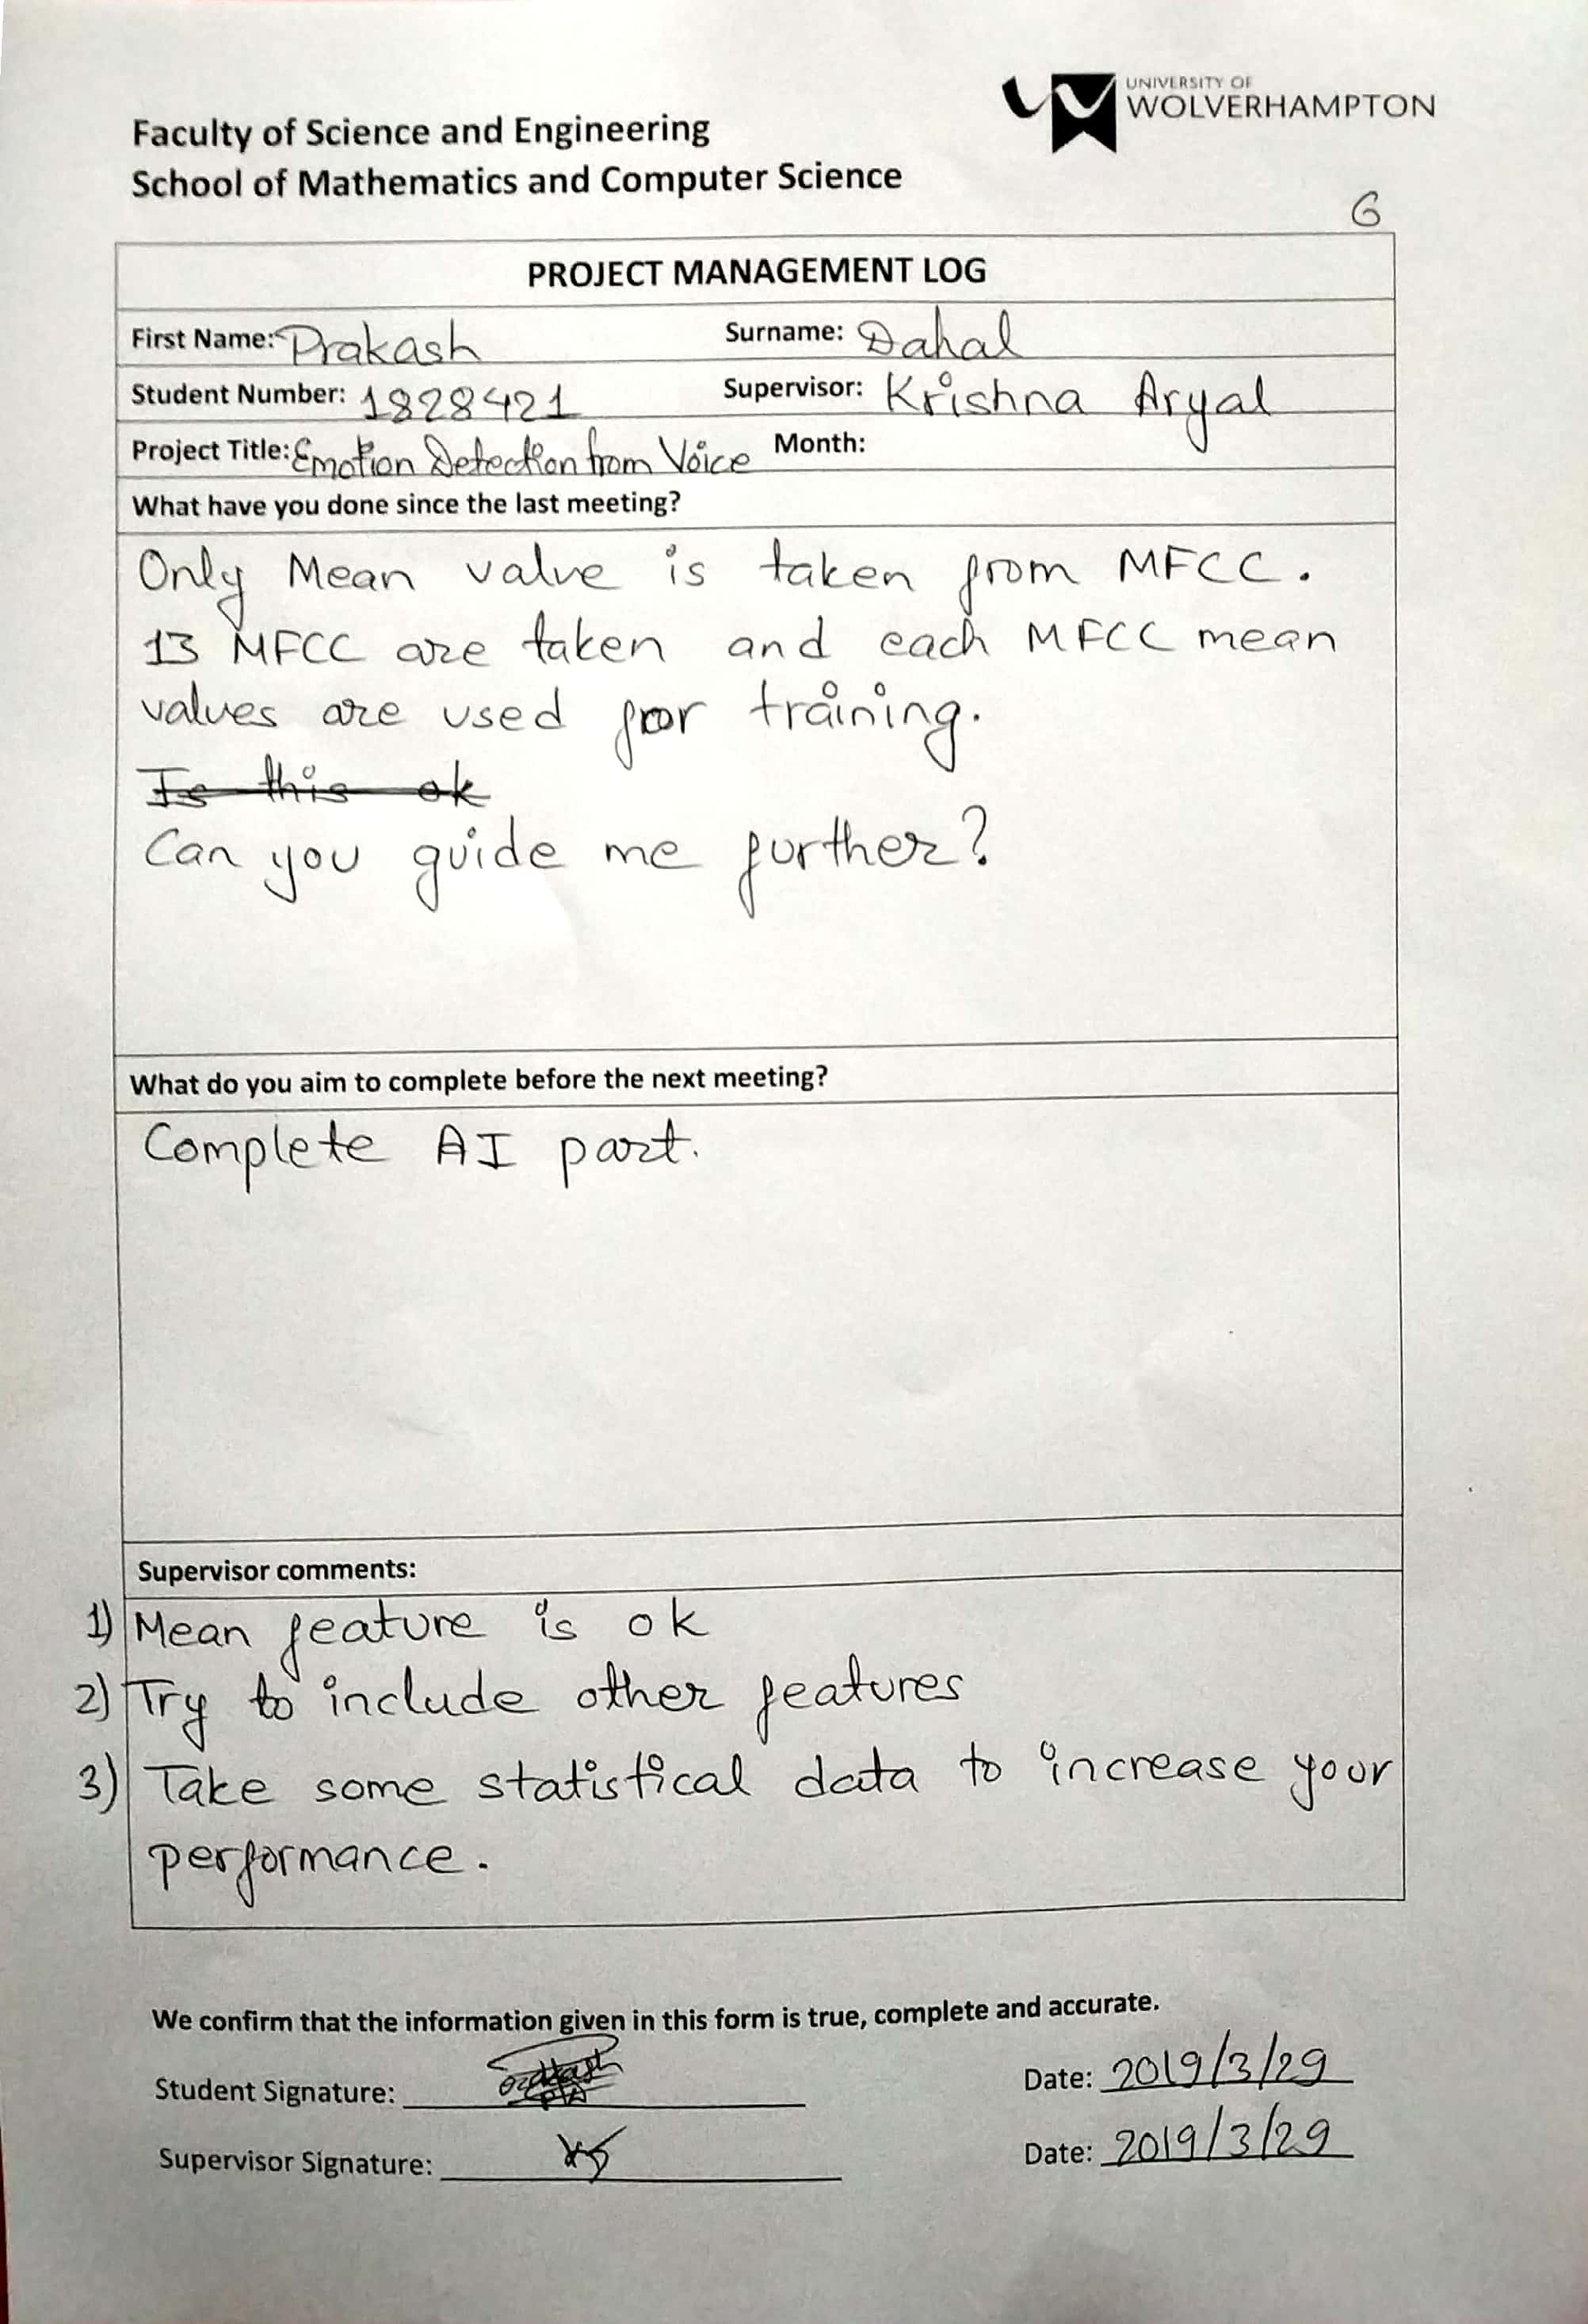 UNIVERSITY OF
WOLVERHAMPTON
Faculty of Science and Engineering
School of Mathematics and Computer Science
6
PROJECT MANAGEMENT LOG
First Name: Prakash Surname: Dahal
Student Number: 1828421 Supervisor: Krishna Aryal
Project Title: Emotion Detection from Voice Month:
What have you done since the last meeting?
Only Mean value is taken from MFCC.
13 MFCC are taken and each MFCC mean
values are used for training.
Is this ok
Can you guide me further?
What do you aim to complete before the next meeting?
Complete AI part.
Supervisor comments:
1) Mean feature is ok
2) Try to include other features
3) Take some statistical data to increase your
performance.
We confirm that the information given in this form is true, complete and accurate.
Student Signature: Date: 2019/3/29
Supervisor Signature: Date: 2019/3/29